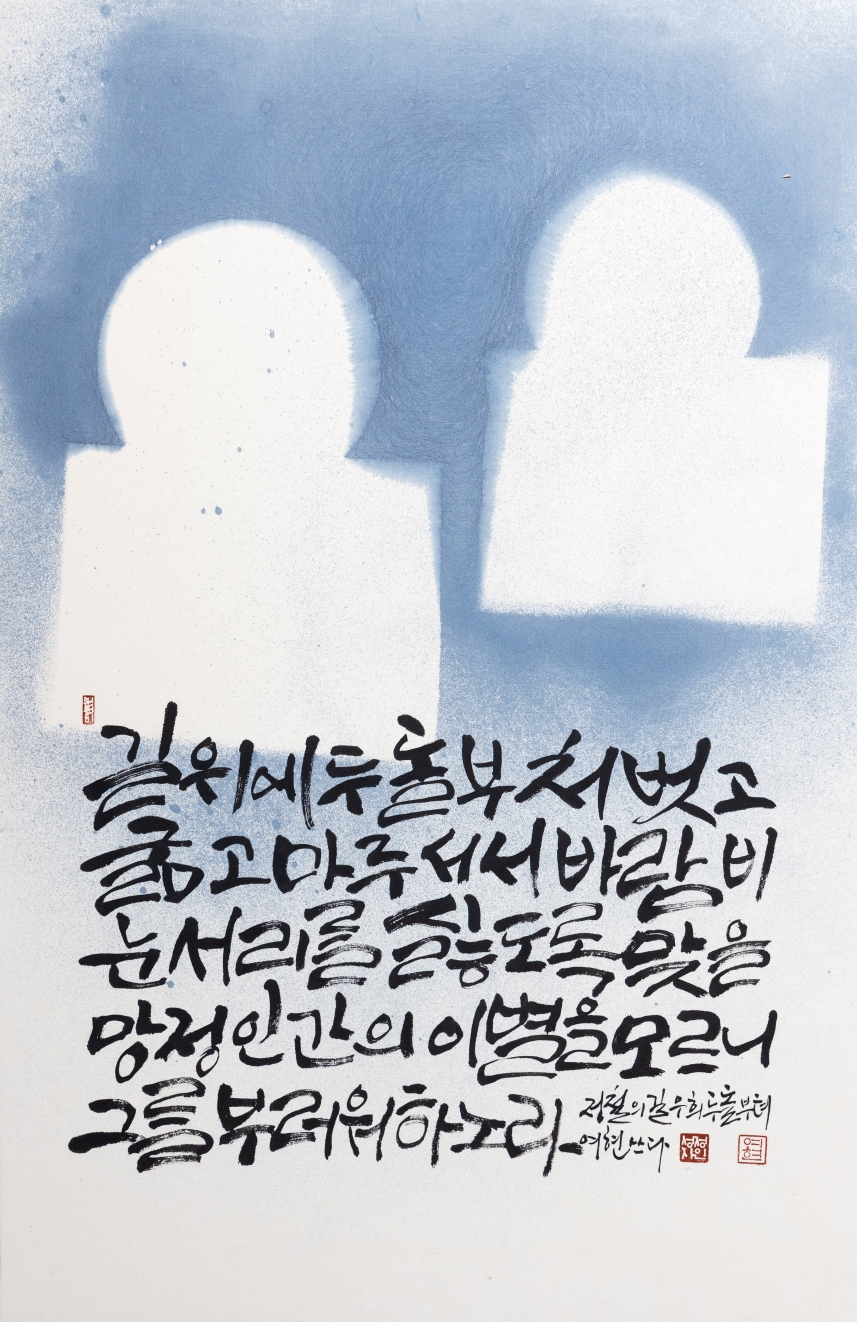 길 위에 두 돌부처 벗고
굶고 마주 서서 바람 비
눈서리를 싫도록 맞을
망정 인간의 이별을 모르니
그를 부러워 하노라
정철의 길 우희 두 돌부텨
여현 쓰다